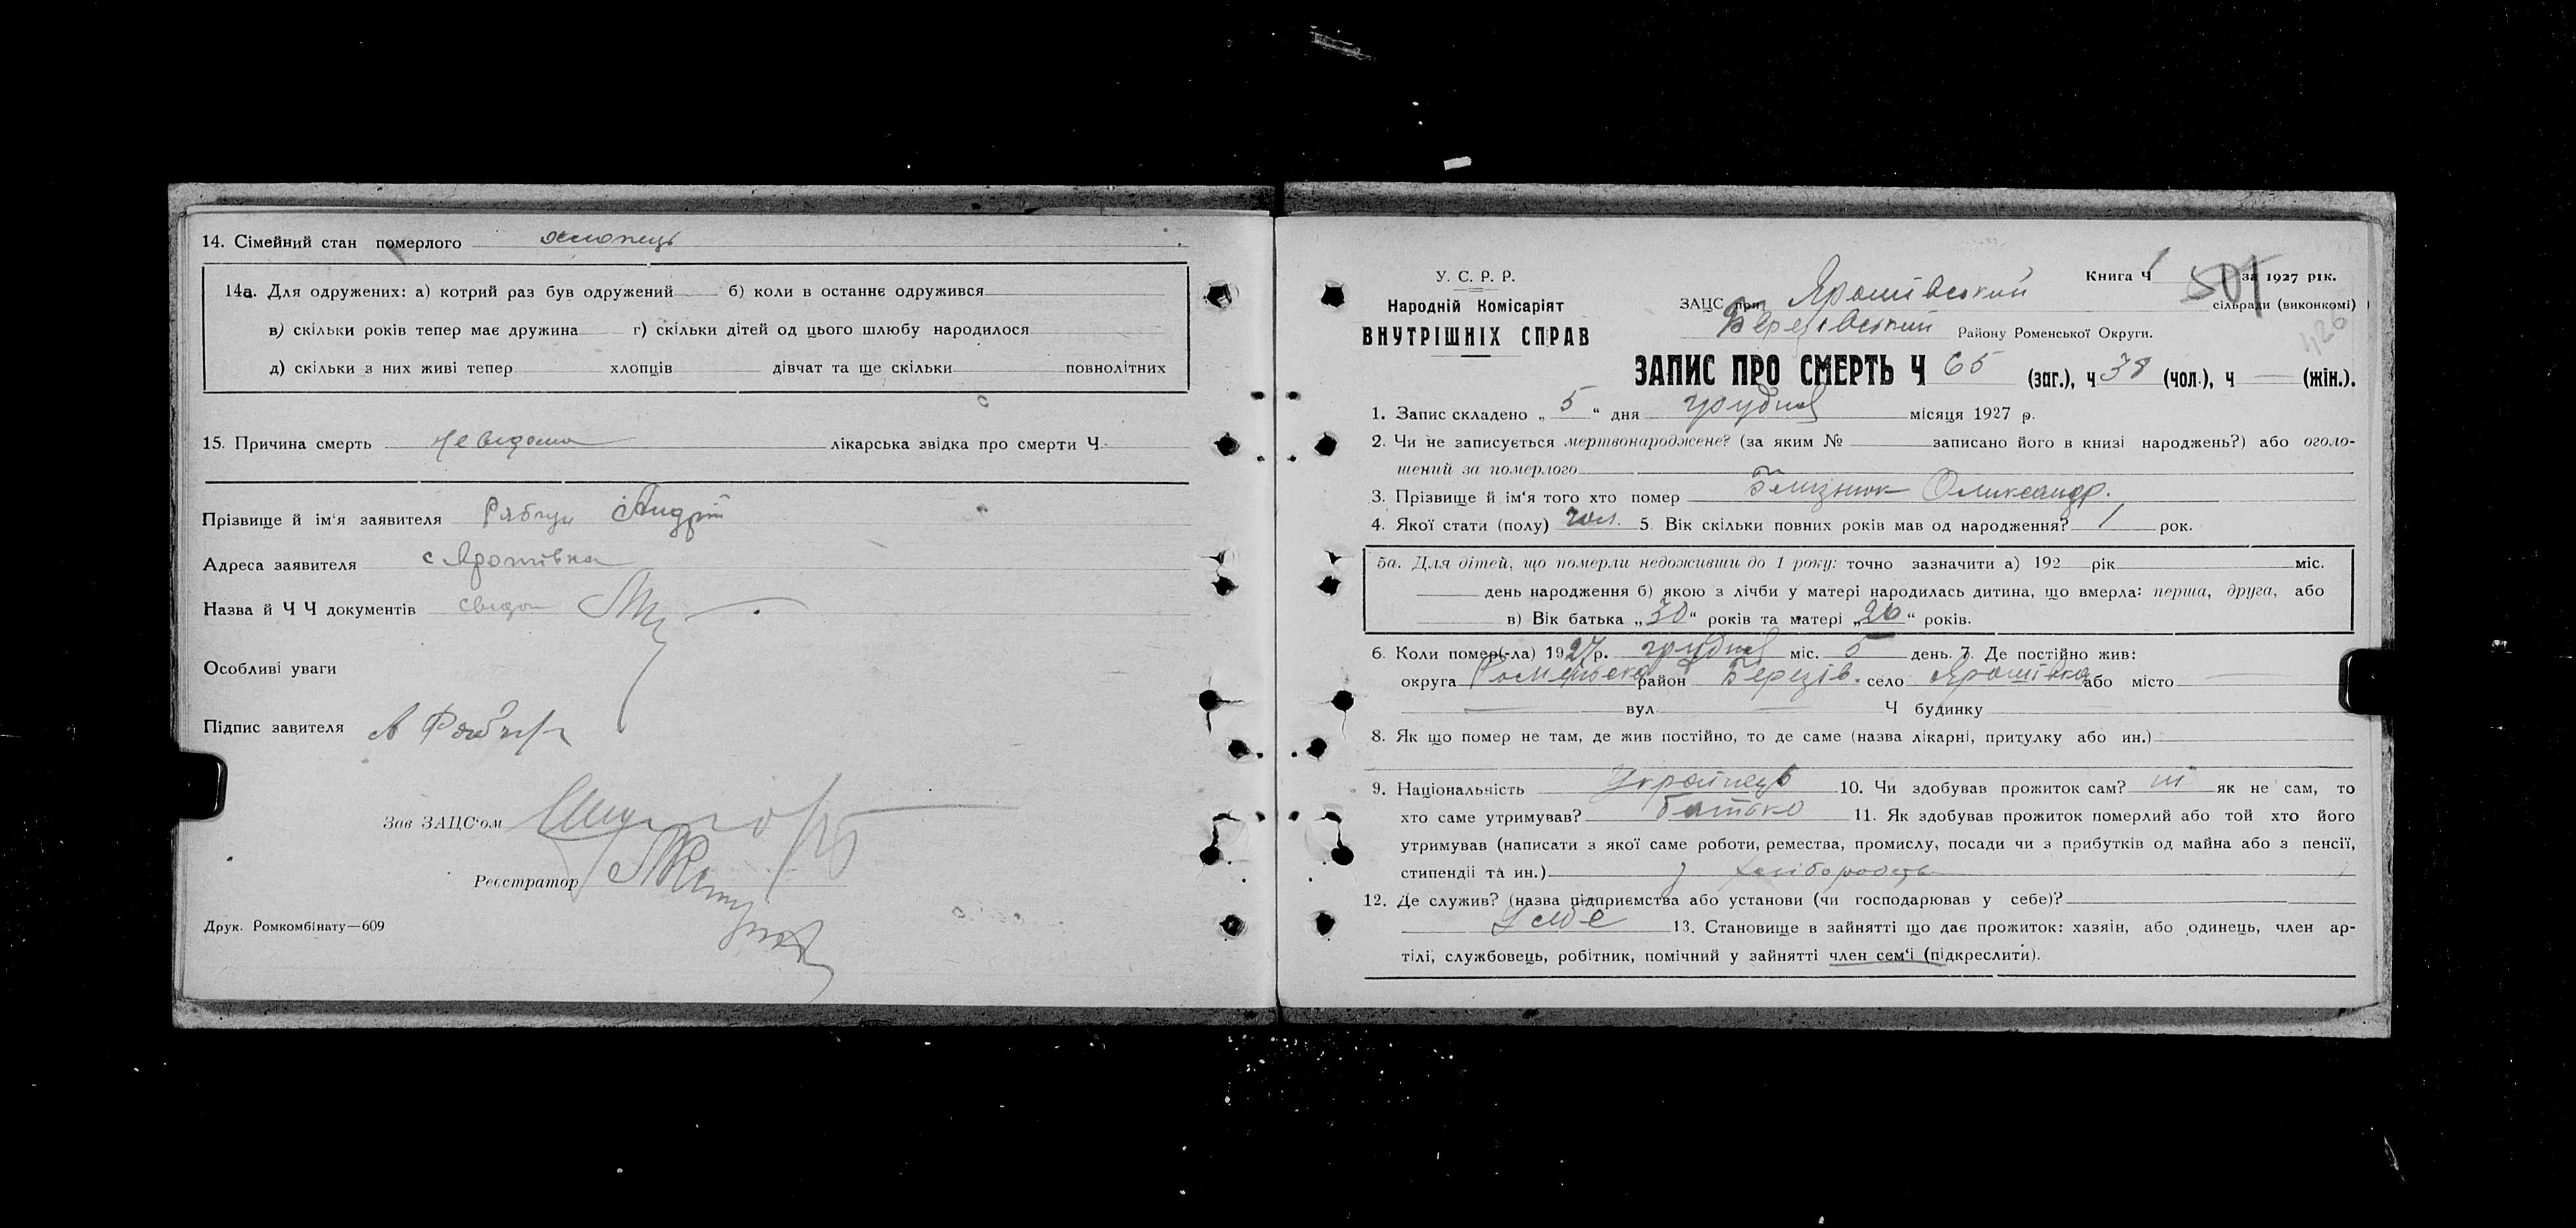 14. Сімейний стан померлого хлопець
14а. Для одружених: а) котрий раз був одружений б) коли в останнє одружився
в) скільки років тепер має дружина г) скільки дітей од цього шлюбу народилося
д) скільки з них живі тепер хлопців дівчат та ще скільки повнолітних
15. Причина смерть невідома лікарська звідка про смерти Ч
Прізвище й ім'я заявителя Рябчун Андрій
Адреса заявителя с Ярошівка
Назва й Ч Ч документів свідок
Особливі уваги
Підпис завителя А Рябчун
Зав ЗАЦС'ом
Реєстратор
Друк. Ромкомбінату—609
У. С. Р. Р.
Народній Комісаріят
ВНУТРІШНІХ СПРАВ
Книга Ч 1 за 1927 рік.
501
ЗАЦС при Ярошівський сільради (виконкомі)
Березівський Району Роменської Округи.
426
ЗАПИС ПРО СМЕРТЬ Ч 65 (заг.), ч 38 (чол.), ч — (жін.).
1. Запис складено „ 5 “ дня грудня місяця 1927 р.
2. Чи не записується мертвонароджене? (за яким № записано його в книзі народжень?) або оголо-
шений за померлого
3. Прізвище й ім'я того хто помер Близнюк Олександр.
4. Якої стати (полу) чол. 5. Вік скільки повних років мав од народження? 1 рок.
5а. Для дітей, що померли недоживши до 1 року: точно зазначити а) 192 рік міс.
день народження б) якою з лічби у матері народилась дитина, що вмерла: перша, друга, або
в) Вік батька „30“ років та матері „26“ років.
6. Коли помер(-ла) 1927 р. грудня міс. 5 день. 7. Де постійно жив:
округа Роменська район Березів. село Ярошівка або місто —
— вул. — Ч будинку
8. Як що помер не там, де жив постійно, то де саме (назва лікарні, притулку або ин.)
9. Національність Українець 10. Чи здобував прожиток сам? ні як не сам, то
хто саме утримував? батько 11. Як здобував прожиток померлий або той хто його
утримував (написати з якої саме роботи, ремества, промислу, посади чи з прибутків од майна або з пенсії,
стипендії та ин.) з хліборобст
12. Де служив? (назва підприємства або установи (чи господарював у себе)?
У себе 13. Становище в зайнятті що дає прожиток: хазяін, або одинець, член ар-
тілі, службовець, робітник, помічний у зайнятті член сем'ї (підкреслити).